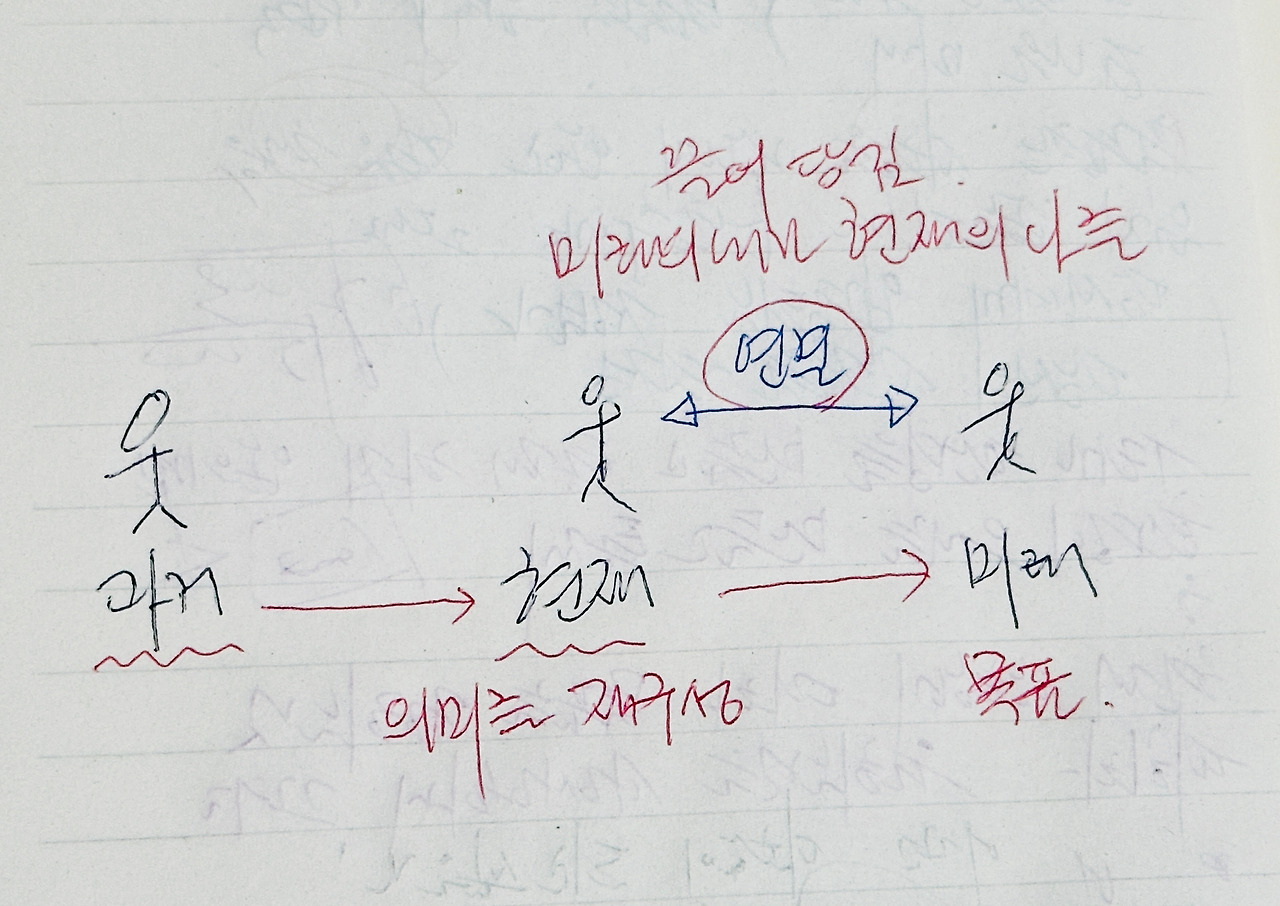 끌어 당김.
미래의 내가 현재의 나를
연모
과거 현재 미래
의미를 재구성 목표.